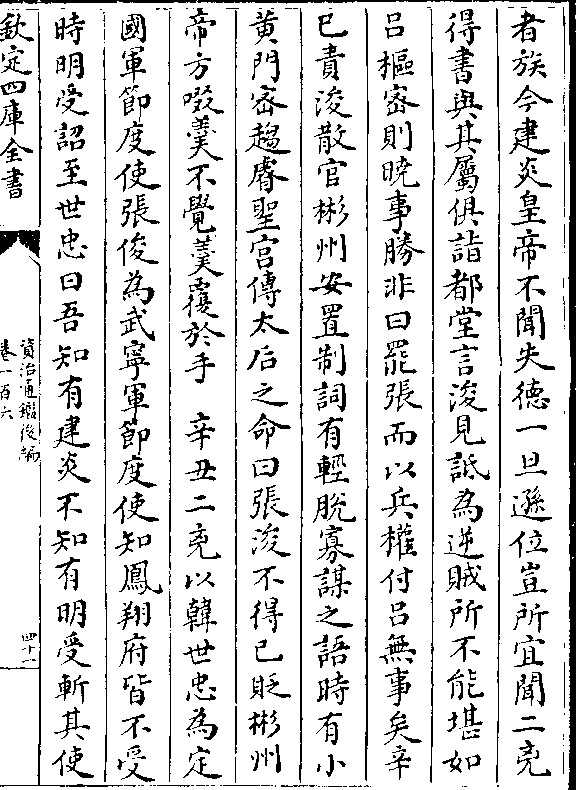 者族今建炎皇帝不聞失德一旦遜位豈所宜聞二兇
得書與其屬俱詣都堂言浚見詆為逆賊所不能堪如
吕樞密則曉事勝非曰罷張而以兵權付吕無事矣辛
已責浚散官彬州安置制詞有輕脫寡謀之語時有小
黄門密趨睿聖宫傳太后之命曰張浚不得已貶彬州
帝方啜羮不覺羮覆於手　辛丑二兇以韓世忠為定
國軍節度使張俊為武寧軍節度使知鳳翔府皆不受
時明受詔至世忠曰吾知有建炎不知有明受斬其使
欽定四庫全書
資治通鑑後編
卷一百六
四十一